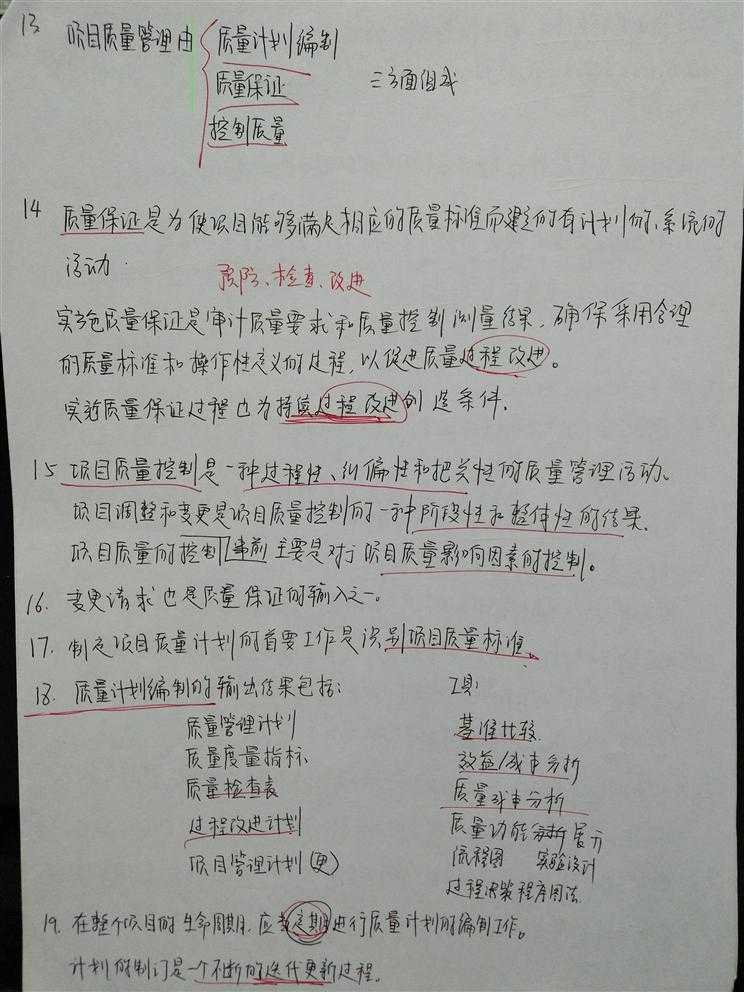 13 项目质量管理由 质量计划编制
质量保证 三方面组成
控制质量
14 质量保证是为使项目能够满足相应的质量标准而建立的有计划的、系统的
活动.
预防、检查、改进
实施质量保证是审计质量要求和质量控制测量结果,确保采用合理
的质量标准和操作性定义的过程,以促进质量过程改进。
实施质量保证过程也为持续过程改进创造条件.
15 项目质量控制是一种过程性、纠偏性和把关性的质量管理活动。
项目调整和变更是项目质量控制的一种阶段性和整体性的结果.
项目质量的控制 事前 主要是对于项目质量影响因素的控制。
16. 变更请求也是质量保证的输入之一。
17. 制定项目质量计划的首要工作是识别项目质量标准。
18. 质量计划编制的输出结果包括: 工具:
质量管理计划 基准比较.
质量度量指标 效益/成本分析
质量检查表 质量成本分析
过程改进计划 质量功能 展开
项目管理计划(更) 流程图 实验设计
过程决策程序图法.
19. 在整个项目的生命周期,应当定期进行质量计划的编制工作。
计划的制订是一个不断的迭代更新过程.